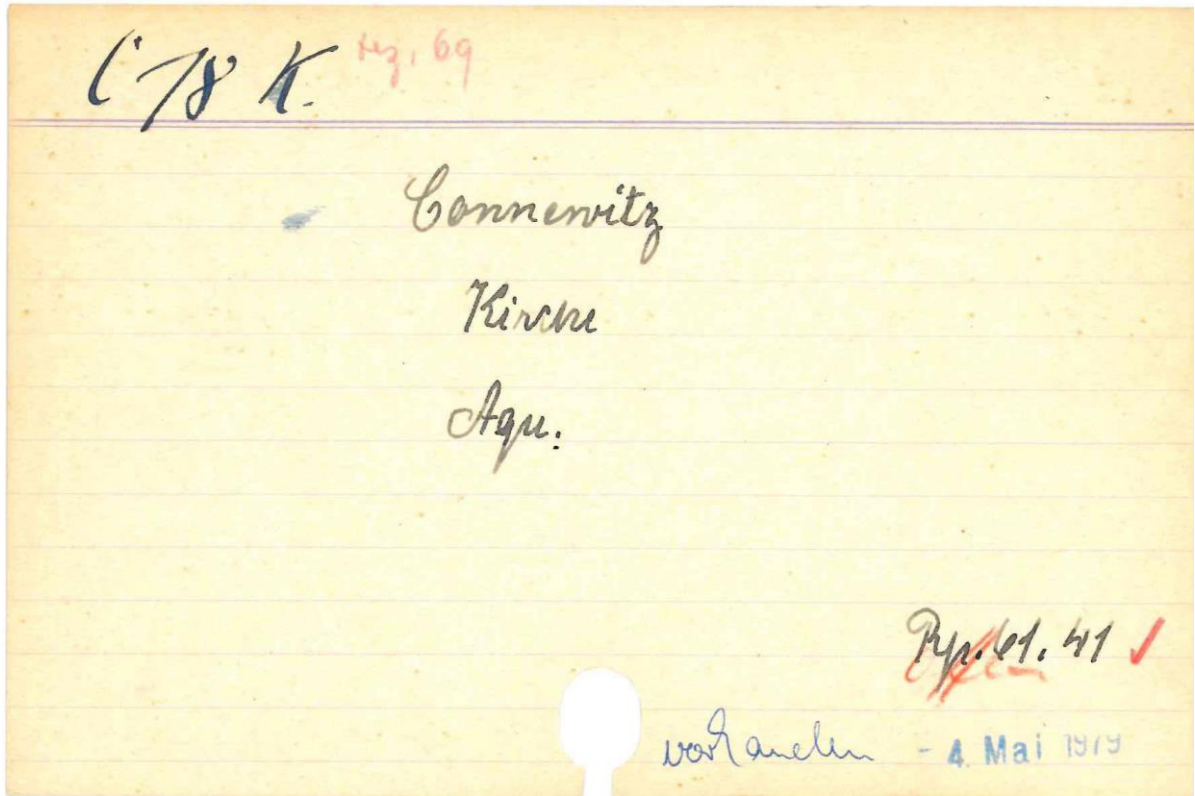 C 78 K. rez. 69
Connewitz
Kirche
Aqu.
Rp. 61. 41 ✓
offen
vorhanden - 4. Mai 1979